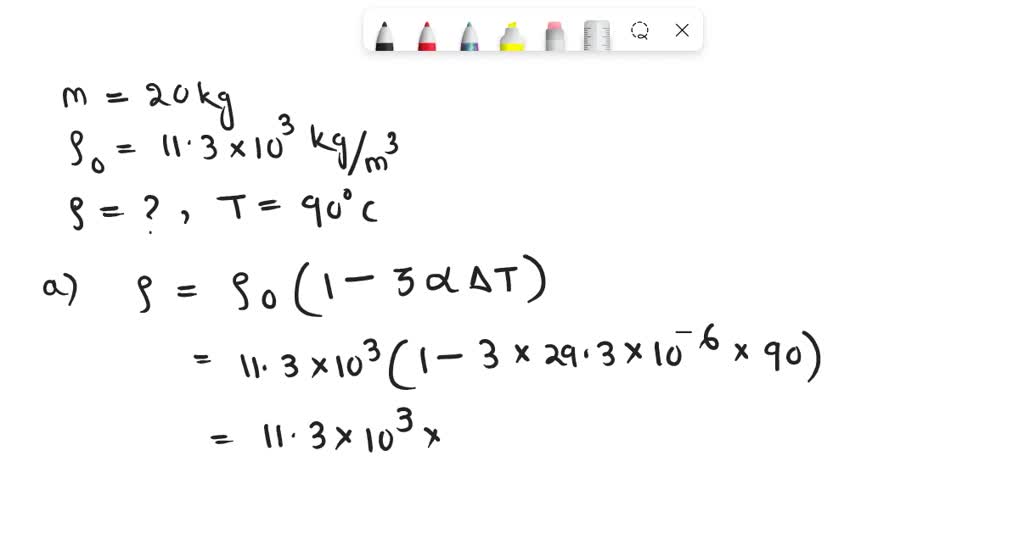 m = 20 kg
ρ₀ = 11.3 × 10³ kg/m³
ρ = ? , T = 90°c
a) ρ = ρ₀ (1 − 3 α ΔT)
= 11.3 × 10³ (1 − 3 × 29.3 × 10⁻⁶ × 90)
= 11.3 × 10³ ×